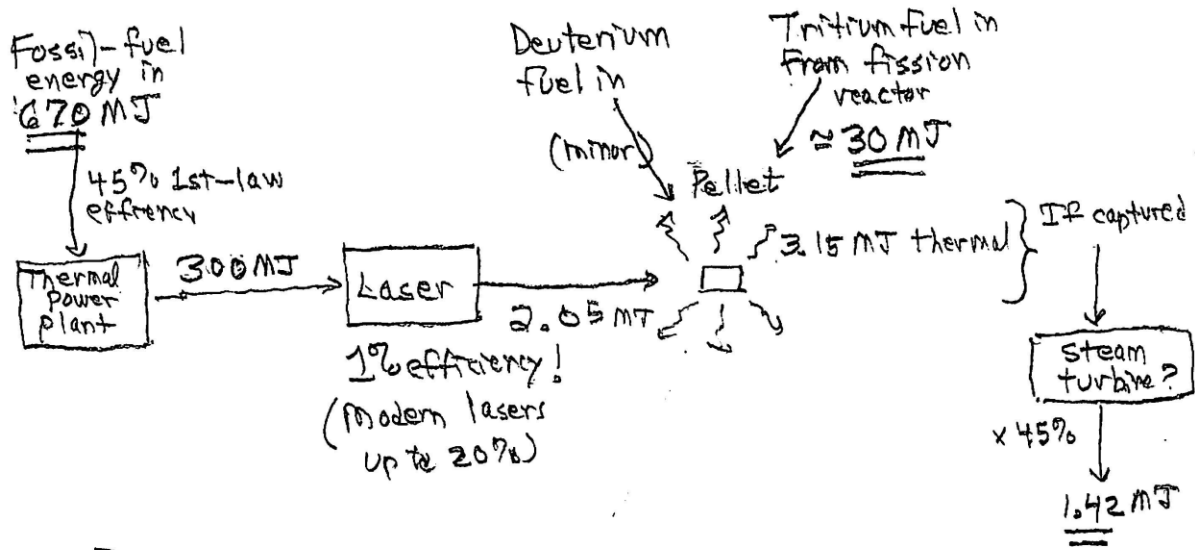 Fossil-fuel
energy in
670 MJ
45% 1st-law
effrency
Thermal
Power
plant
300 MJ
Laser
1% efficiency!
(Modern lasers
up to 20%)
2.05 MJ
Deuterium
fuel in
(minor)
Tritium fuel in
from fission
reactor
≈ 30 MJ
Pellet
3.15 MJ thermal
If captured
steam
turbine?
x 45%
1.42 MJ